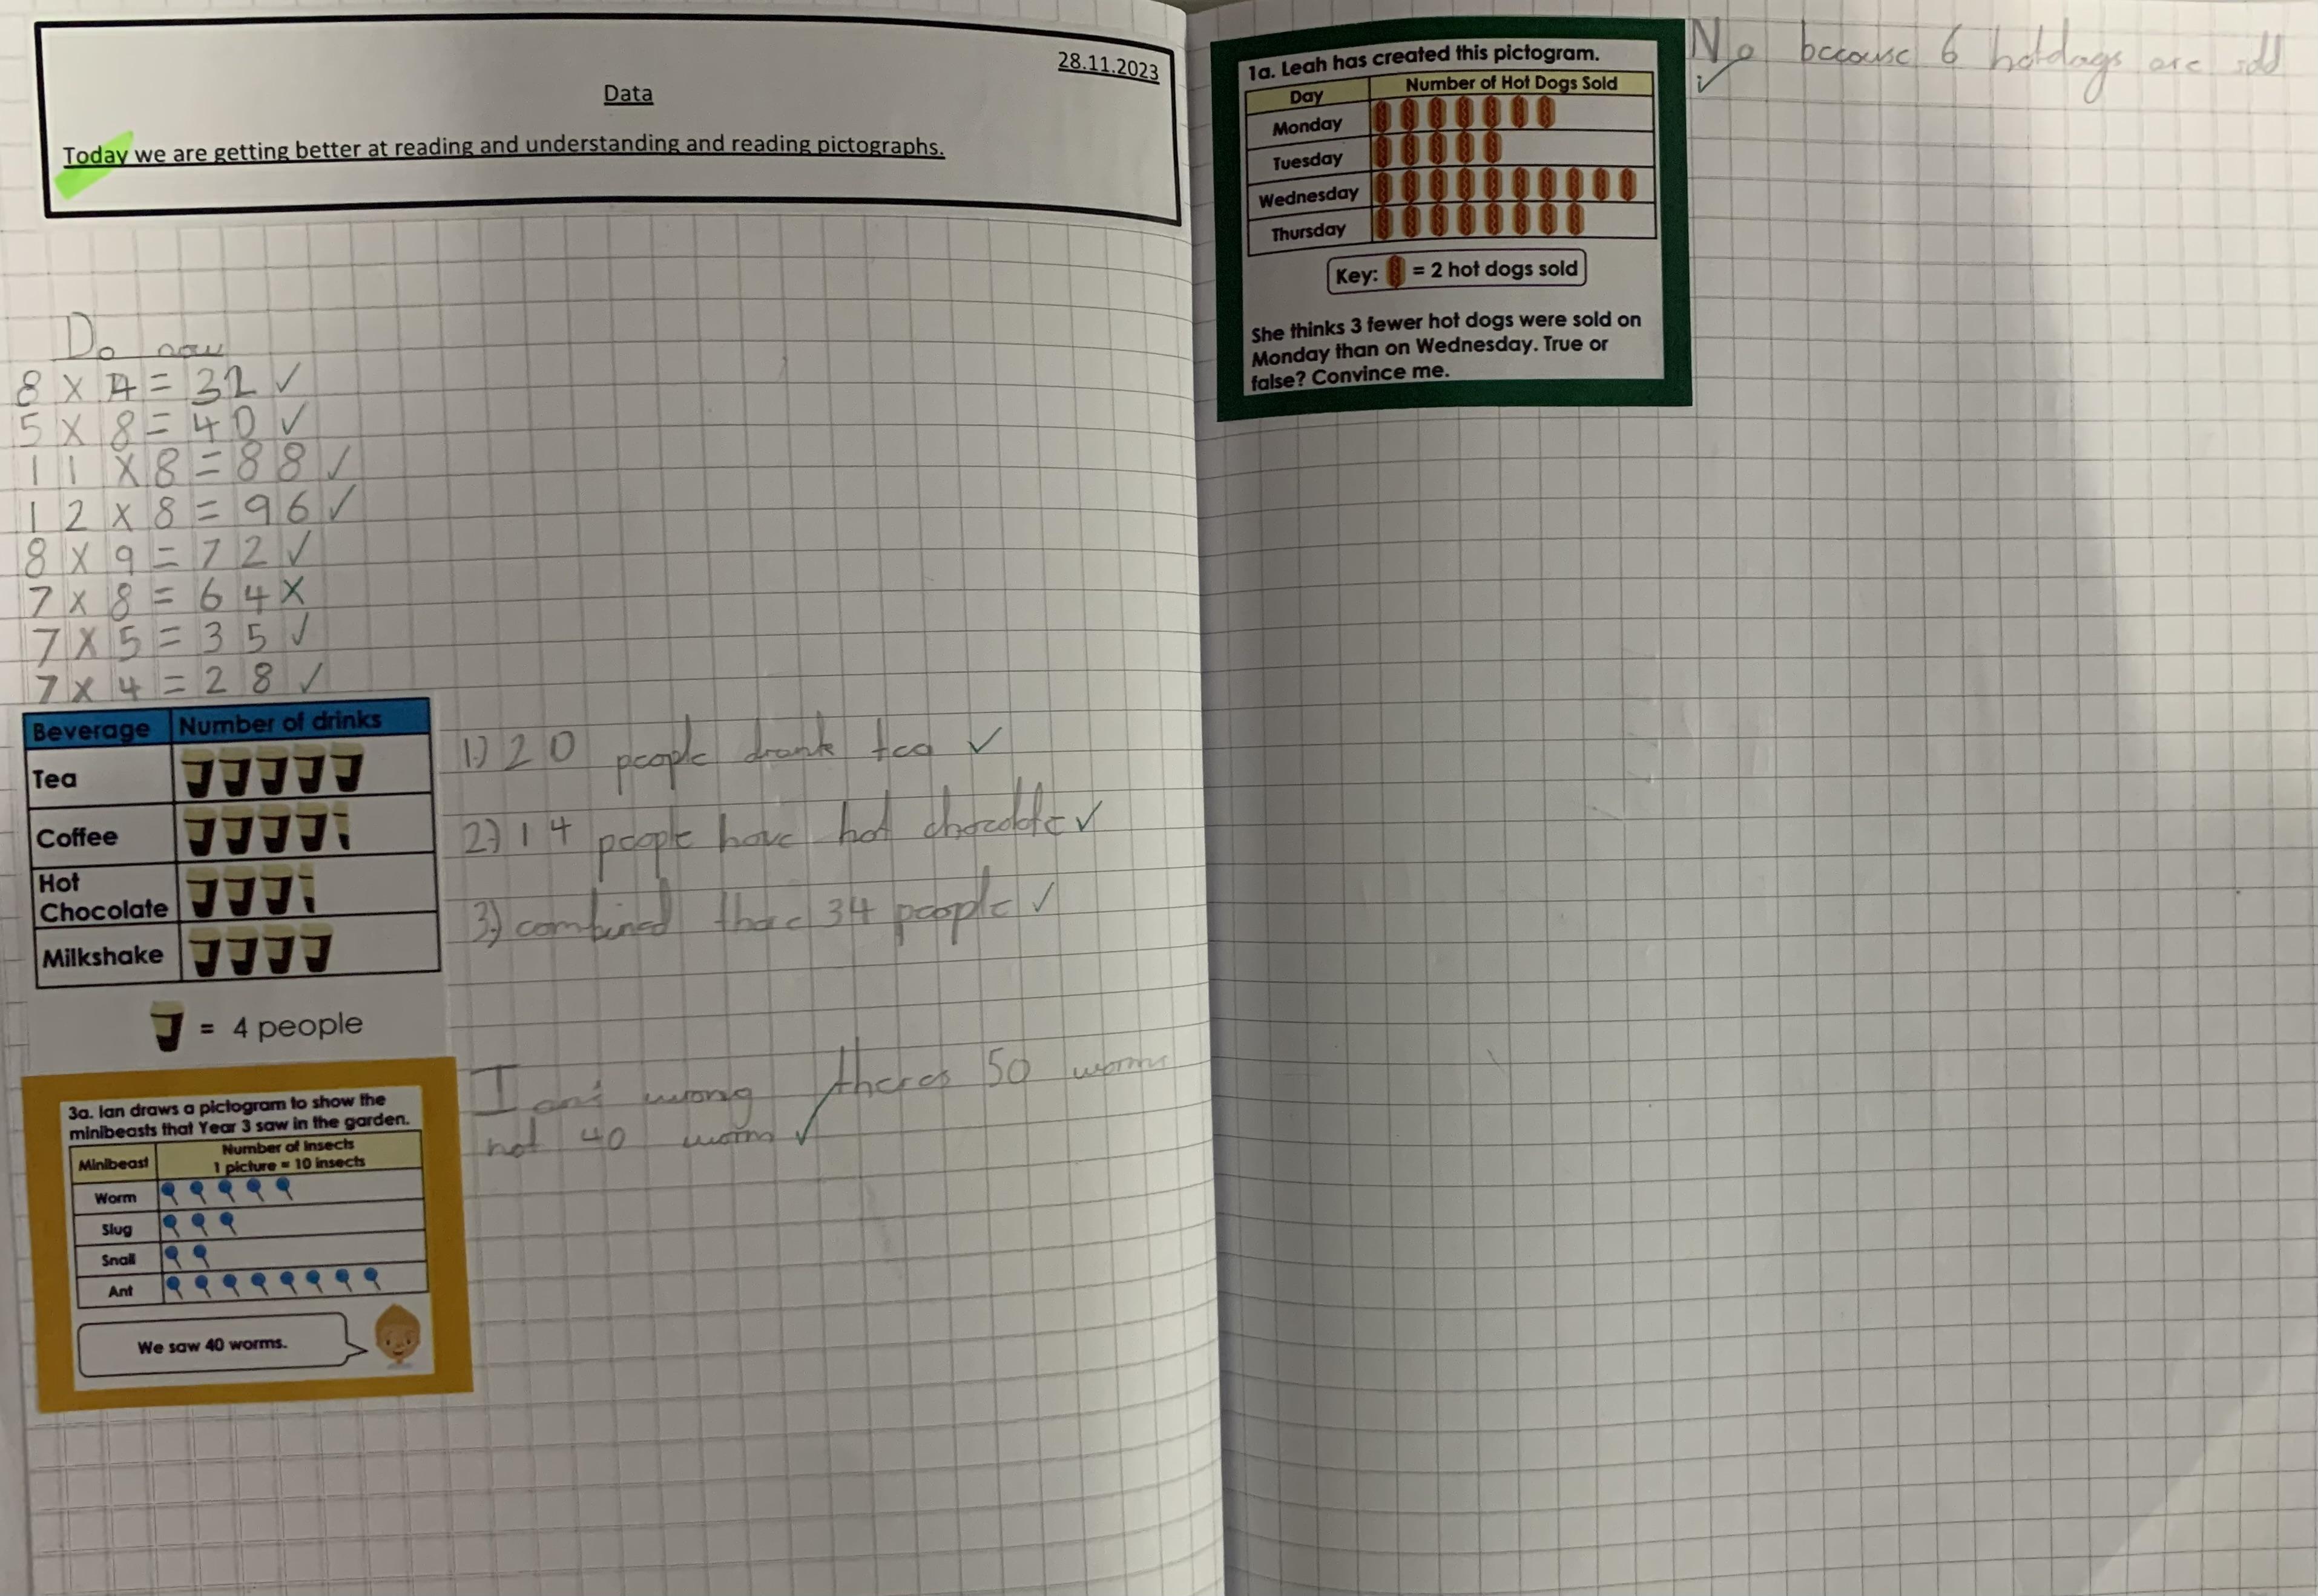 28.11.2023
Data
Today we are getting better at reading and understanding and reading pictographs.
Do now
8 x 4 = 32 ✓
5 x 8 = 40 ✓
11 x 8 = 88 ✓
12 x 8 = 96 ✓
8 x 9 = 72 ✓
7 x 8 = 64 x
7 x 5 = 35 ✓
7 x 4 = 28 ✓
Beverage Number of drinks
Tea
Coffee
Hot
Chocolate
Milkshake
= 4 people
1.) 20 people drank tea ✓
2.) 14 people have hot chocolate ✓
3.) combined there 34 people ✓
3a. Ian draws a pictogram to show the
minibeasts that Year 3 saw in the garden.
Minibeast Number of insects
1 picture = 10 insects
Worm
Slug
Snail
Ant
We saw 40 worms.
wrong theres 50 worms
not 40 worms ✓
1a. Leah has created this pictogram.
Day Number of Hot Dogs Sold
Monday
Tuesday
Wednesday
Thursday
Key: = 2 hot dogs sold
She thinks 3 fewer hot dogs were sold on
Monday than on Wednesday. True or
false? Convince me.
No because 6 hotdogs are sold
✓